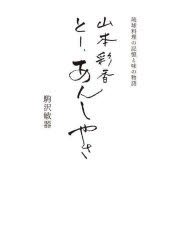 琉球料理の記憶と味の物語
山本彩香
とー、あんしやさ
駒沢敏器